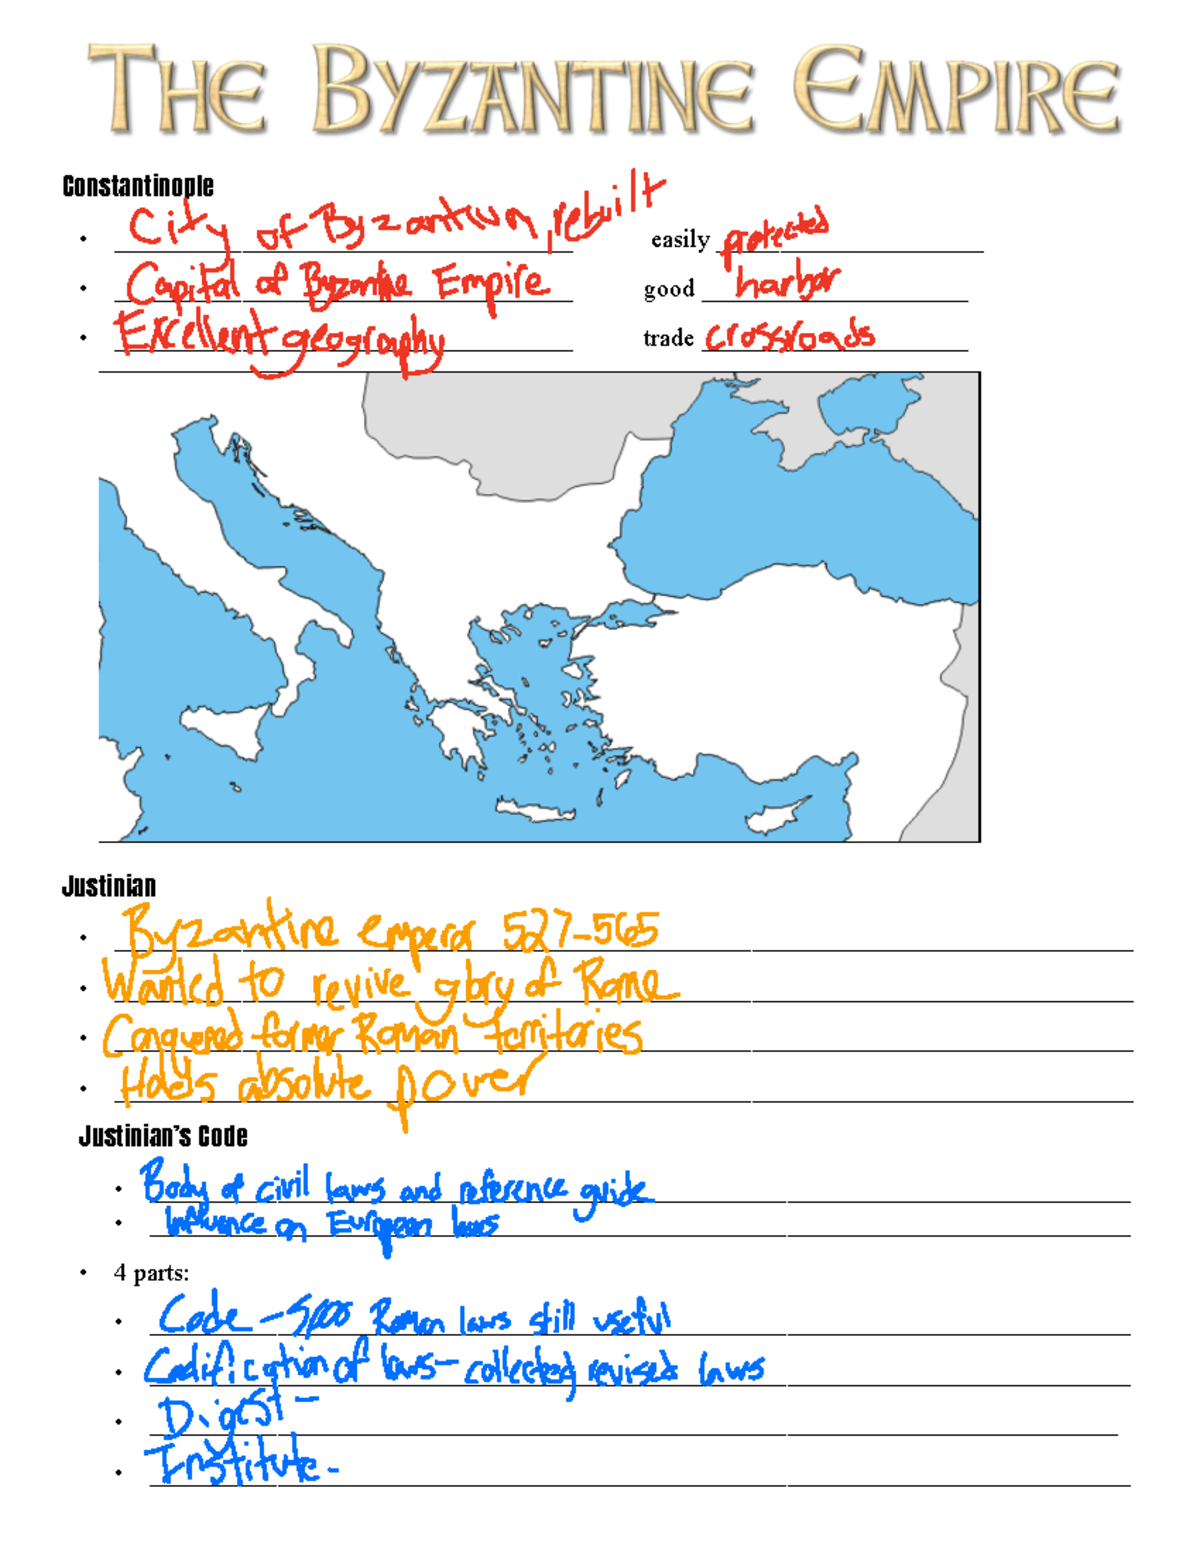 THE BYZANTINE EMPIRE
Constantinople
• City of Byzantium, rebuilt easily protected
• Capital of Byzantine Empire good harbor
• Excellent geography trade crossroads
Justinian
• Byzantine emperor 527-565
• Wanted to revive glory of Rome
• Conquered former Roman territories
• Holds absolute power
Justinian's Code
• Body of civil laws and reference guide
• Influence on European laws
• 4 parts:
• Code - 5000 Roman laws still useful
• Codification of laws - collected, revised laws
• Digest -
• Institute -